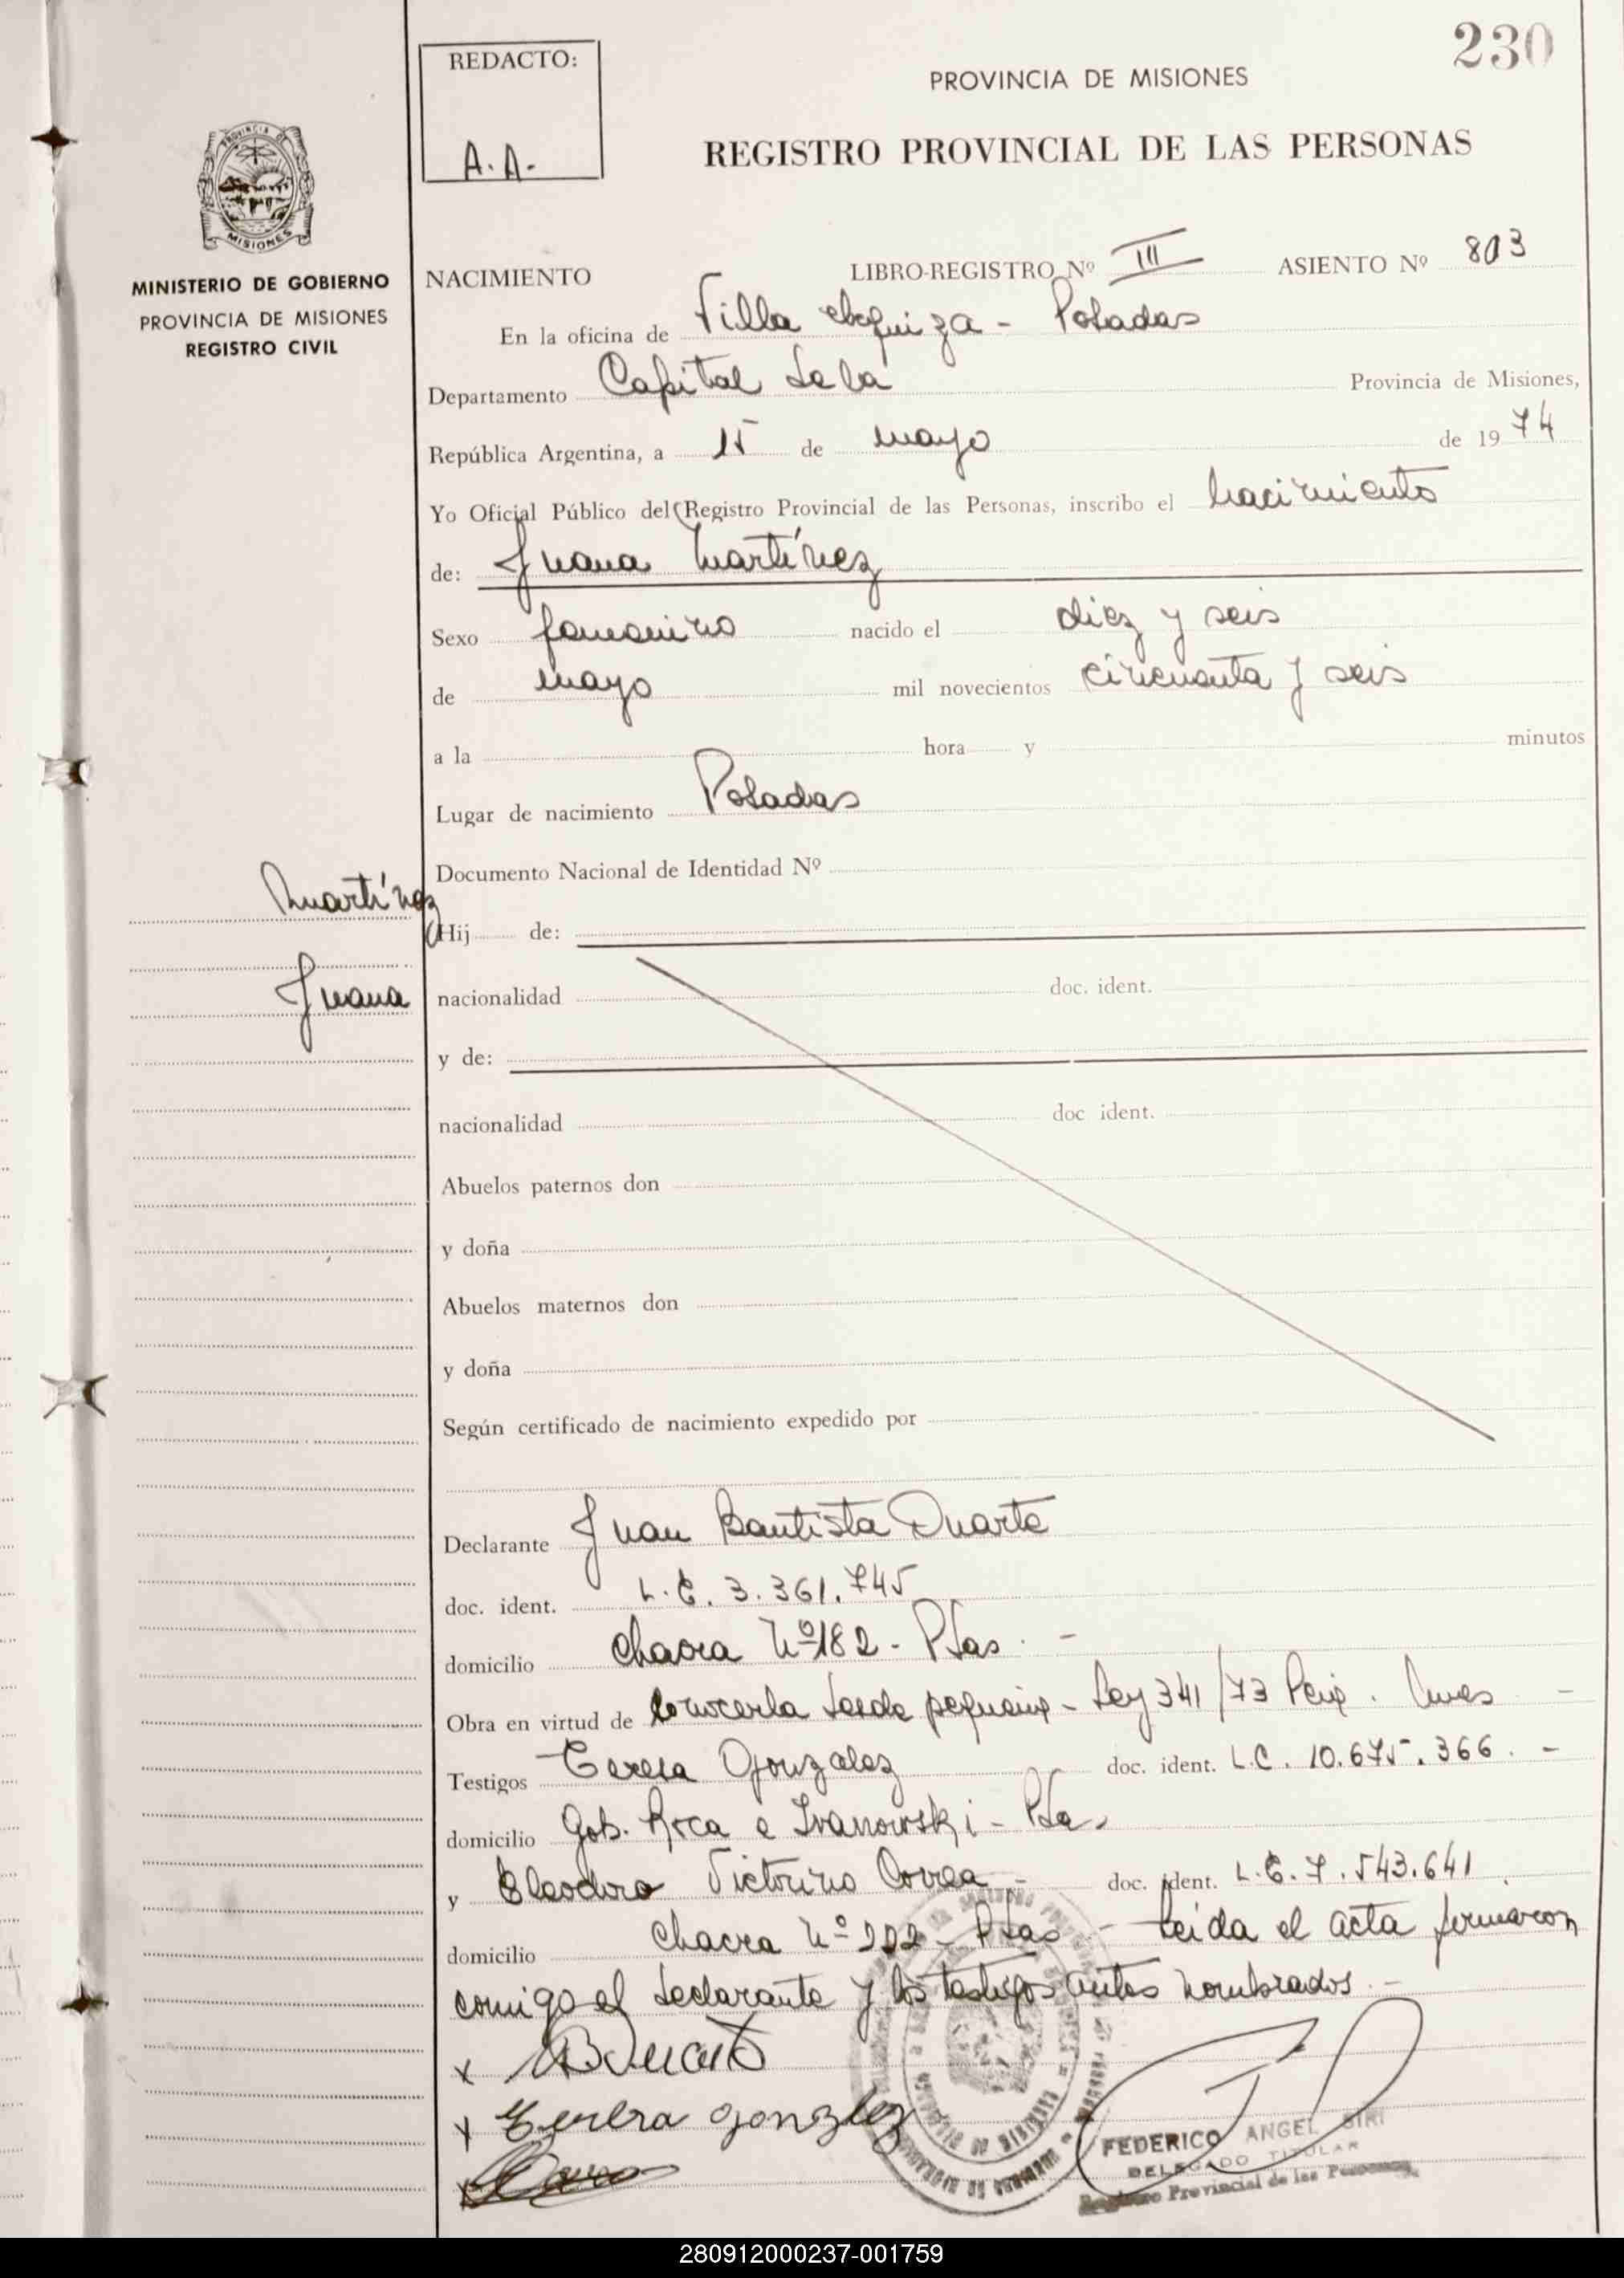 230
REDACTO:
A.A.-
PROVINCIA DE MISIONES
REGISTRO PROVINCIAL DE LAS PERSONAS
PROVINCIA DE
MISIONES
MINISTERIO DE GOBIERNO
PROVINCIA DE MISIONES
REGISTRO CIVIL
NACIMIENTO LIBRO-REGISTRO Nº III ASIENTO Nº 803
En la oficina de Villa - Posadas
Departamento Capital Provincia de Misiones,
República Argentina, a 15 de mayo de 1974
Yo Oficial Público del Registro Provincial de las Personas, inscribo el nacimiento
de: Juana Martínez
Sexo femenino nacido el diez y seis
de mayo mil novecientos cincuenta y seis
a la hora y minutos
Lugar de nacimiento Posadas
Documento Nacional de Identidad Nº
Martínez
Juana
Hij de:
nacionalidad doc. ident.
y de:
nacionalidad doc ident.
Abuelos paternos don
y doña
Abuelos maternos don
y doña
Según certificado de nacimiento expedido por
Declarante Juan Bautista Duarte
doc. ident. L.E. 3.361.745
domicilio Chacra Nº 182 - Psas. -
Obra en virtud de conocerla desde - Ley 341/73
Testigos Teresa Gonzalez doc. ident. L.C. 10.675.366. -
domicilio Gob. Roca e Ivanowski -
y Eleodoro Victorino Correa - doc. ident. L.E. 7.543.641
domicilio Chacra Nº 222 - Psas - Leida el acta firmaron
comigo el declarante y los testigos antes nombrados. -
x
x gonzlez
x
FEDERICO ANGEL SIRI
DELEGADO TITULAR
Registro Provincial de las Personas
280912000237-001759